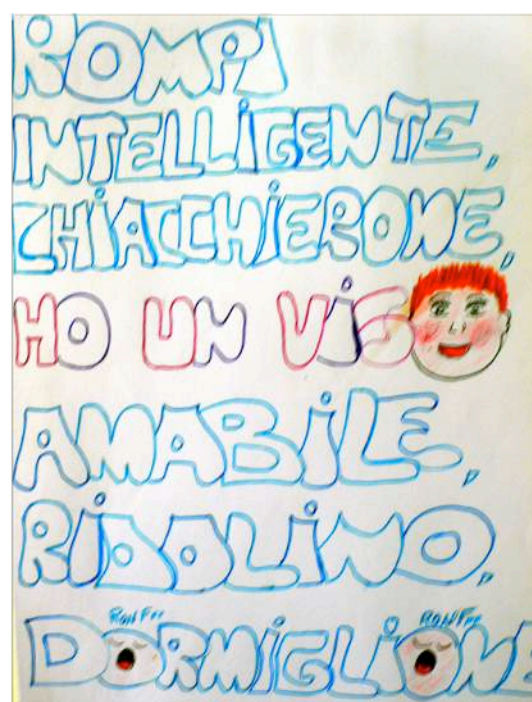 ROMPI
INTELLIGENTE,
CHIACCHIERONE,
HO UN VISO
AMABILE,
RIDOLINO,
RONF RONF
DORMIGLIONE